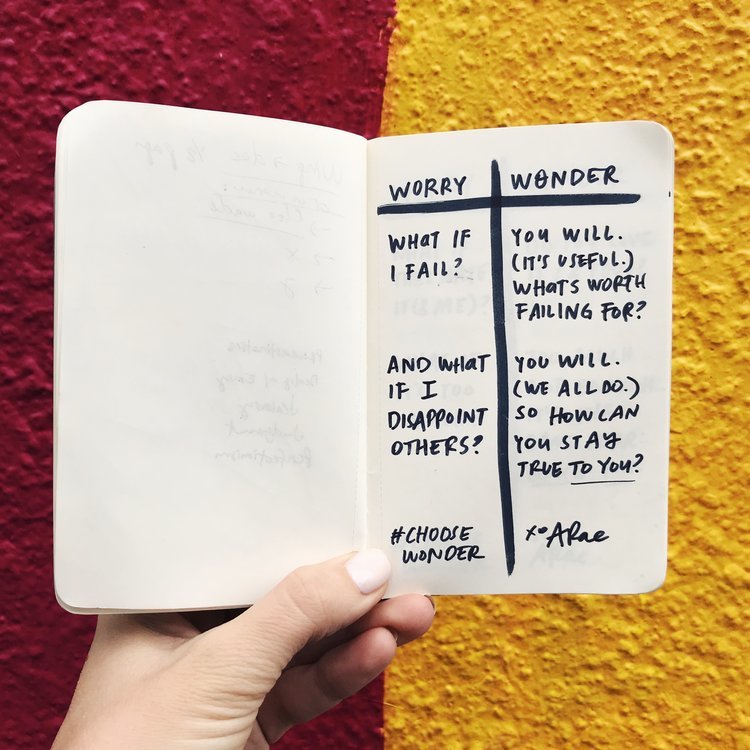 WORRY
WONDER
WHAT IF
I FAIL?
YOU WILL.
(IT'S USEFUL.)
WHAT'S WORTH
FAILING FOR?
AND WHAT
IF I
DISAPPOINT
OTHERS?
YOU WILL.
(WE ALL DO.)
SO HOW CAN
YOU STAY
TRUE TO YOU?
#CHOOSE
WONDER
xo ARae
Perfectionism